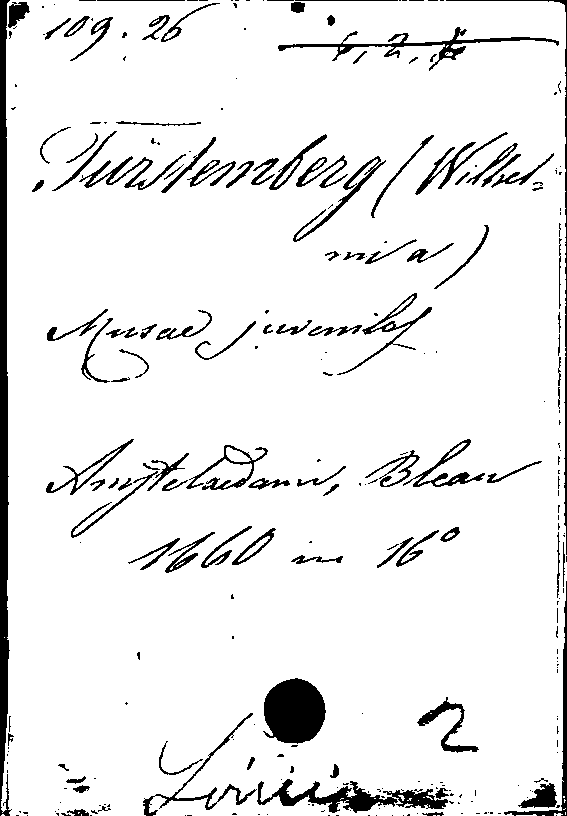 109.26
6, 2,
Fürstemberg (Wilhel-
mi a)
Musae juveniles
Amstelaedami, Bleau
1660 in 16°
2